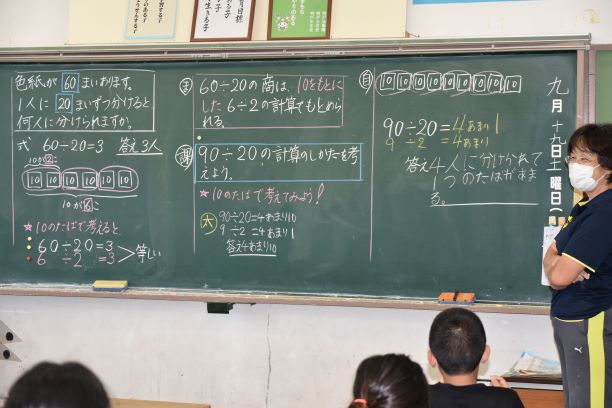 色紙が60まいあります。
1人に20まいずつ分けると
何人に分けられますか。
式 60÷20=3 答え3人
10が②こ
10 10 10 10 10 10
10が⑥こ
★10のたばで考えると
60÷20=3
6÷2=3
>等しい
ま
60÷20の商は、10をもとに
した6÷2の計算でもとめら
れる。
課
90÷20の計算のしかたを考
えよう。
★10のたばで考えてみよう!
六
90÷20=4あまり10
9÷2=4あまり1
答え4あまり10
自
10 10 10 10 10 10 10 10 10
90÷20=4あまり1
9÷2=4あまり
答え4人に分けられて
1つのたばがあま
る。
九月十日土曜日